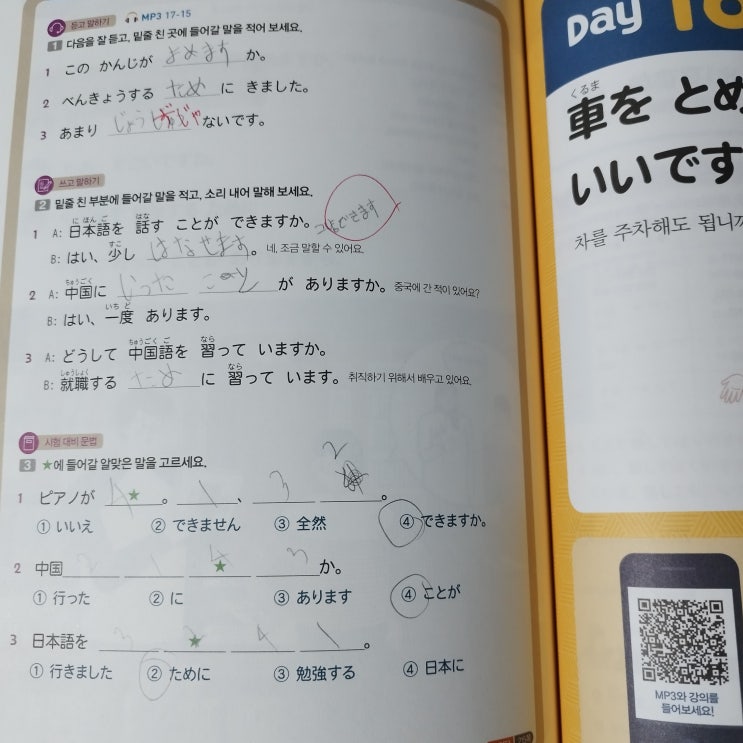 듣고 말하기 MP3 17-15
1 다음을 잘 듣고, 밑줄 친 곳에 들어갈 말을 적어 보세요.
1 この かんじが よめます か。
2 べんきょうする ため に きました。
3 あまり じょうず じゃ ないです。
쓰고 말하기
2 밑줄 친 부분에 들어갈 말을 적고, 소리 내어 말해 보세요.
1 A: 日本語を 話す ことが できますか。
にほんご はな
B: はい、少し はなせます。 네, 조금 말할 수 있어요.
すこ
2 A: 中国に いった こと が ありますか。 중국에 간 적이 있어요?
ちゅうごく
B: はい、一度 あります。
いちど
3 A: どうして 中国語を 習って いますか。
ちゅうごくご なら
B: 就職する ため に 習って います。 취직하기 위해서 배우고 있어요.
しゅうしょく なら
시험 대비 문법
3 ★에 들어갈 알맞은 말을 고르세요.
2
1 ピアノが 4 ★ 。 1 、 3 。
① いいえ ② できません ③ 全然 ④ できますか。
2 中国 2 1 4 ★ 3 か。
① 行った ② に ③ あります ④ ことが
3 日本語を 3 2 ★ 4 1 。
① 行きました ② ために ③ 勉強する ④ 日本に
Day
くるま
車を とめ
いいです
차를 주차해도 됩니까
MP3와 강의를
들어보세요!